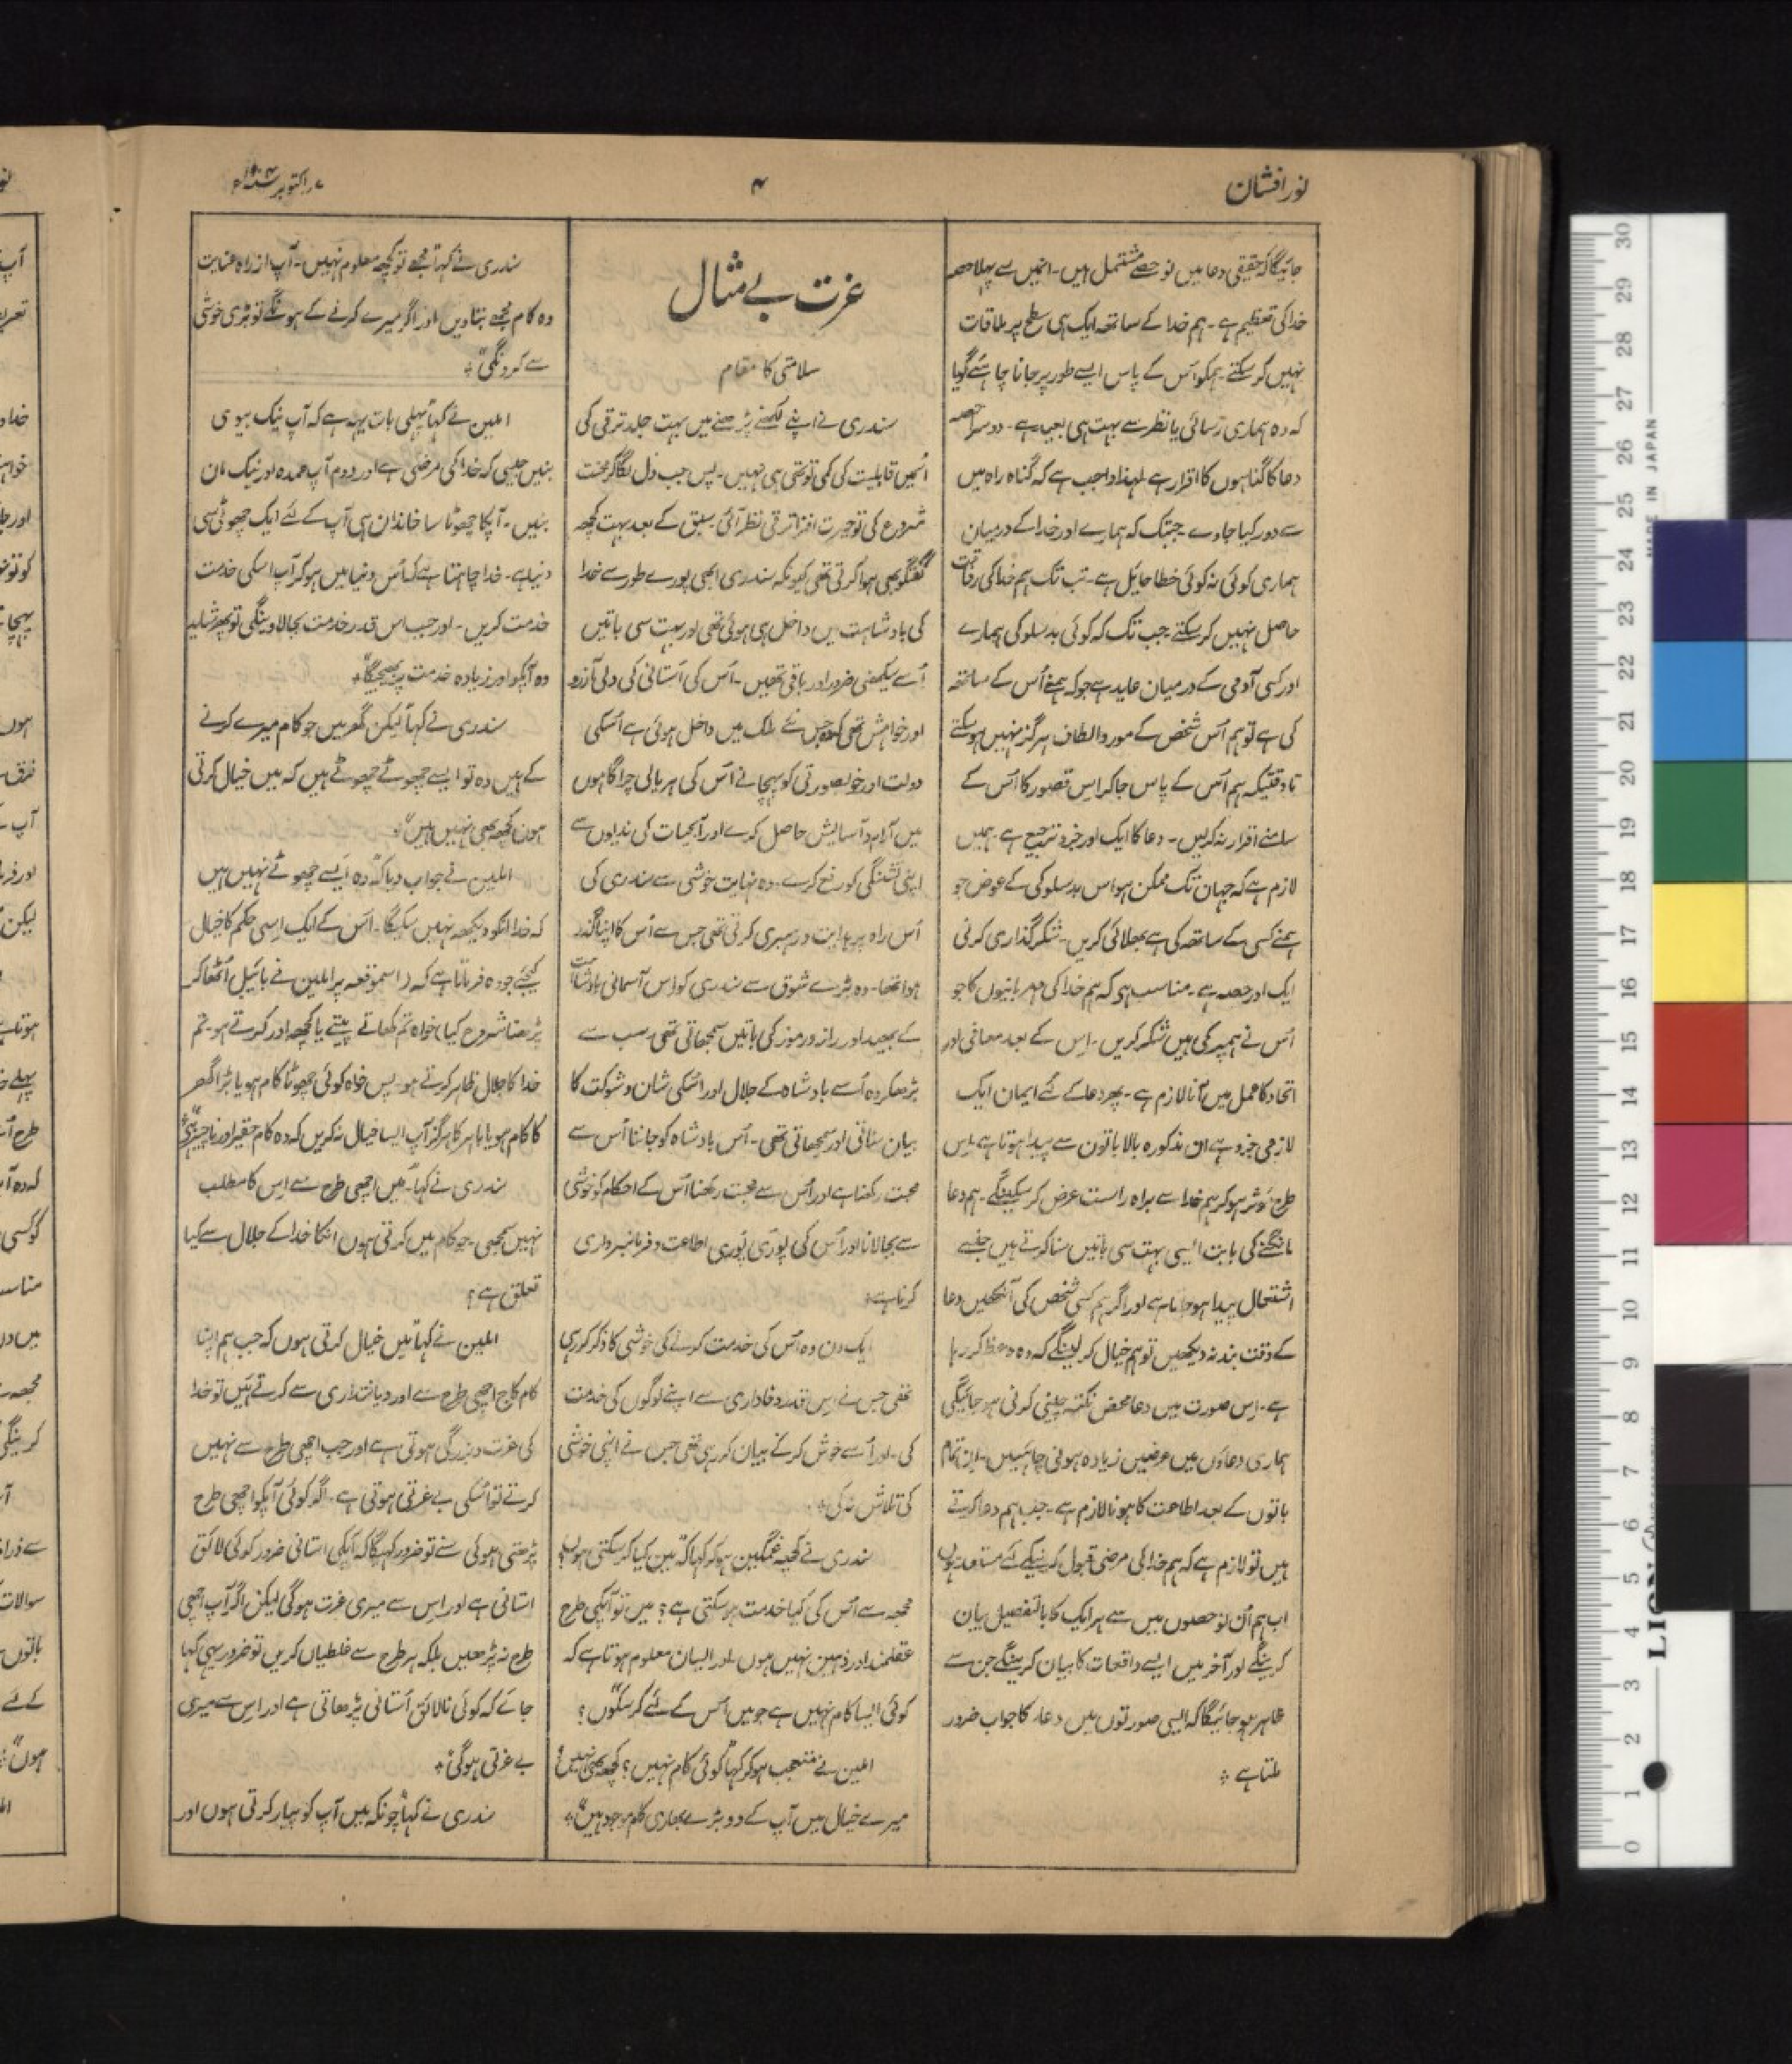 نورافشان
۴
۷؍اکتوبر
جائیگا کہ حقیقی دعا میں نو حصے مشتمل ہیں۔ انمیں سے پہلا حصہ
خدا کی تعظیم ہے۔ ہم خدا کے ساتھ ایک ہی سطح پر ملاقات
نہیں کر سکتے۔ ہمکو اُس کے پاس ایسے طور پر جانا چاہئے گویا
کہ وہ ہماری رسائی یا نظر سے بہت ہی بعید ہے۔ دوسرا حصہ
دعا کا گناہوں کا اقرار ہے لہذا واجب ہے کہ گناہ راہ میں
سے دور کیا جاوے۔ جبتک کہ ہمارے اور خدا کے درمیان
ہماری کوئی نہ کوئی خطا حایل ہے۔ تب تک ہم خدا کی رفاقت
حاصل نہیں کر سکتے۔ جب تک کہ کوئی بدسلوکی ہمارے
اور کسی آدمی کے درمیان عاید ہے جو کہ ہمنے اُس کے ساتھ
کی ہے تو ہم اُس شخص کے مورد الطاف ہرگز نہیں ہو سکتے
تاوقتیکہ ہم اُس کے پاس جا کر اس قصور کا اُس کے
سامنے اقرار نہ کریں۔ دعا کا ایک اور جزو ترجیع ہے۔ ہمیں
لازم ہے کہ جہان تک ممکن ہو اس بدسلوکی کے عوض جو
ہمنے کسی کے ساتھ کی ہے بھلائی کریں۔ شکر گذاری کرنی
ایک اور حصہ ہے۔ مناسب ہی کہ ہم خدا کی مہربانیوں کا جو
اُس نے ہمپر کی ہیں شکر کریں۔ اِس کے بعد معافی اور
اتحاد کا عمل میں آنا لازم ہے۔ پھر دعا کے لئے ایمان ایک
لازمی جزو ہے ان مذکورہ بالا باتوں سے پیدا ہوتا ہے۔ اِس
طرح موثر ہو کر ہم خدا سے براہ راست عرض کر سکینگے۔ ہم دعا
مانگنے کی بابت ایسی بہت سی باتیں سنا کرتے ہیں جنسے
اشتعال پیدا ہو جاتا ہے اور اگر ہم کسی شخص کی آنکھیں دعا
کے وقت بند نہ دیکھیں تو ہم خیال کر لینگے کہ وہ وعظ کر رہا
ہے۔ اِس صورت میں دعا محض نکتہ چینی کرنی ہو جائیگی
ہماری دعاؤں میں عرضیں زیادہ ہونی چاہئیں۔ اِن تمام
باتوں کے بعد اطاعت کا ہونا لازم ہے۔ جب ہم دعا کرتے
ہیں تو لازم ہے کہ ہم خدا کی مرضی قبول کرنیکے لئے مستعد ہوں
اب ہم اُن نو حصوں میں سے ہر ایک کا بالتفصیل بیان
کرینگے اور آخر میں ایسے واقعات کا بیان کرینگے جن سے
ظاہر ہو جائیگا کہ ایسی صورتوں میں دعا کا جواب ضرور
ملتا ہے ۔
عزت بے مثال
سلامتی کا مقام
سندری نے اپنے لکھنے پڑھنے میں بہت جلد ترقی کی
اُسمیں قابلیت کی کمی تو تھی ہی نہیں۔ پس جب دل لگا کر محنت
شروع کی تو حیرت افزا ترقی نظر آئی۔ سبق کے بعد بہت کچھ
گفتگو بھی ہوا کرتی تھی کیونکہ سندری ابھی پورے طور سے خدا
کی بادشاہت میں داخل ہی ہوئی تھی اور بہت سی باتیں
اُسے سیکھنی ضرور اور باقی تھیں۔ اُس کی اُستانی کی دلی آرزو
اور خواہش تھی کہ وہ جس نئے ملک میں داخل ہوئی ہے اُسکی
دولت اور خوبصورتی کو پہچانے اُس کی ہریالی چراگاہوں
میں آرام و آسایش حاصل کرے اور آبحیات کی ندیوں سے
اپنی تشنگی کو رفع کرے۔ وہ نہایت خوشی سے سندری کی
اُس راہ پر ہدایت و رہبری کرتی تھی جس سے اُس کا اپنا گذر
ہوا تھا۔ وہ بڑے شوق سے سندری کو اِس آسمانی بادشاہت
کے بھید اور راز و رموز کی باتیں سمجھاتی تھی۔ سب سے
بڑھکر وہ اُسے بادشاہ کے جلال اور اُسکی شان و شوکت کا
بیان سناتی اور سمجھاتی تھی۔ اُس بادشاہ کو جاننا اُس سے
محبت رکھنا ہے اور اُس سے محبت رکھنا اُس کے احکام کو خوشی
سے بجا لانا اور اُس کی پوری پوری اطاعت و فرمانبرداری
کرنا ہے۔
ایک دن وہ اُس کی خدمت کرنے کی خوشی کا ذکر کر رہی
تھی جس نے اِس قدر وفاداری سے اپنے لوگوں کی خدمت
کی۔ اور اُسے خوش کرنے بیان کر رہی تھی جس نے اپنی خوشی
کی تلاش نہ کی۔
سندری نے کچھ غمگین ہو کر کہا کہ میں کیا کر سکتی ہوں؟
مجھ سے اُس کی کیا خدمت ہو سکتی ہے؟ میں تو آپکی طرح
عقلمند اور ذہین نہیں ہوں اور ایسا معلوم ہوتا ہے کہ
کوئی ایسا کام نہیں ہے جو میں اُس کے لئے کر سکوں؟
ایلین نے متعجب ہو کر کہا کوئی کام نہیں؟ کچھ بھی نہیں؟
میرے خیال میں آپ کے دو بڑے بھاری کام موجود ہیں"۔
سندری نے کہا "مجھے تو کچھ معلوم نہیں۔ آپ از راہ عنایت
وہ کام مجھے بتا دیں اور اگر میرے کرنے کے ہونگے تو بڑی خوشی
سے کرونگی"۔
ایلین نے کہا پہلی بات یہہ ہے کہ آپ نیک بیوی
بنیں جیسی کہ خدا کی مرضی ہے اور دوم آپ عمدہ اور نیک ماں
بنیں۔ آپکا چھوٹا سا خاندان ہی آپ کے لئے ایک چھوٹی سی
دنیا ہے۔ خدا چاہتا ہے کہ اُس دنیا میں ہو کر آپ اسکی خدمت
خدمت کریں۔ اور جب اس قدر خدمت بجا لاوینگی تو پھر شاید
وہ آپکو اور زیادہ خدمت پر بھیجیگا"۔
سندری نے کہا لیکن گھر میں جو کام میرے کرنے
کے ہیں وہ تو ایسے چھوٹے چھوٹے ہیں کہ میں خیال کرتی
ہوں کچھ بھی نہیں ہیں"۔
ایلین نے جواب دیا کہ "وہ ایسے چھوٹے نہیں ہیں
کہ خدا انکو دیکھ نہیں سکیگا۔ اُس کے ایک اِسی حکم کا خیال
کیجئے جو وہ فرماتا ہے کہ (اسموقعہ پر ایلین نے بائیبل اُٹھا کر
پڑھنا شروع کیا) خواہ تم کھاتے پیتے یا کچھ اور کرتے ہو۔ تم
خدا کا جلال ظاہر کرتے ہو۔ پس خواہ کوئی چھوٹا کام ہو یا بڑا گھر
کا کام ہو یا باہر کا ہرگز آپ ایسا خیال نہ کریں کہ وہ کام حقیر اور ناچیز
سندری نے کہا "میں اچھی طرح سے اِس کا مطلب
نہیں سمجھی۔ جو کام میں کرتی ہوں انکا خدا کے جلال سے کیا
تعلق ہے؟
ایلین نے کہا "میں خیال کرتی ہوں کہ جب ہم اپنا
کام کاج اچھی طرح سے اور دیانتداری سے کرتے ہیں تو خدا
کی عزت و بزرگی ہوتی ہے اور جب اچھی طرح سے نہیں
کرتے تو اُسکی بے عزتی ہوتی ہے۔ اگر کوئی آپکو اچھی طرح
پڑھتی ہوئی سنے تو ضرور کہیگا کہ آپکی استانی ضرور کوئی لائق
استانی ہے اور اِس سے میری عزت ہوگی لیکن اگر آپ اچھی
طرح نہ پڑھیں بلکہ ہر طرح سے غلطیاں کریں تو ضرور یہی کہا
جائے کہ کوئی نالائق اُستانی پڑھاتی ہے اور اِس سے میری
بے عزتی ہوگی"۔
سندری نے کہا "چونکہ میں آپ کو پیار کرتی ہوں اور
MADE IN JAPAN
30
29
28
27
26
25
24
23
22
21
20
19
18
17
16
15
14
13
12
11
10
9
8
7
6
5
4
3
2
1
0